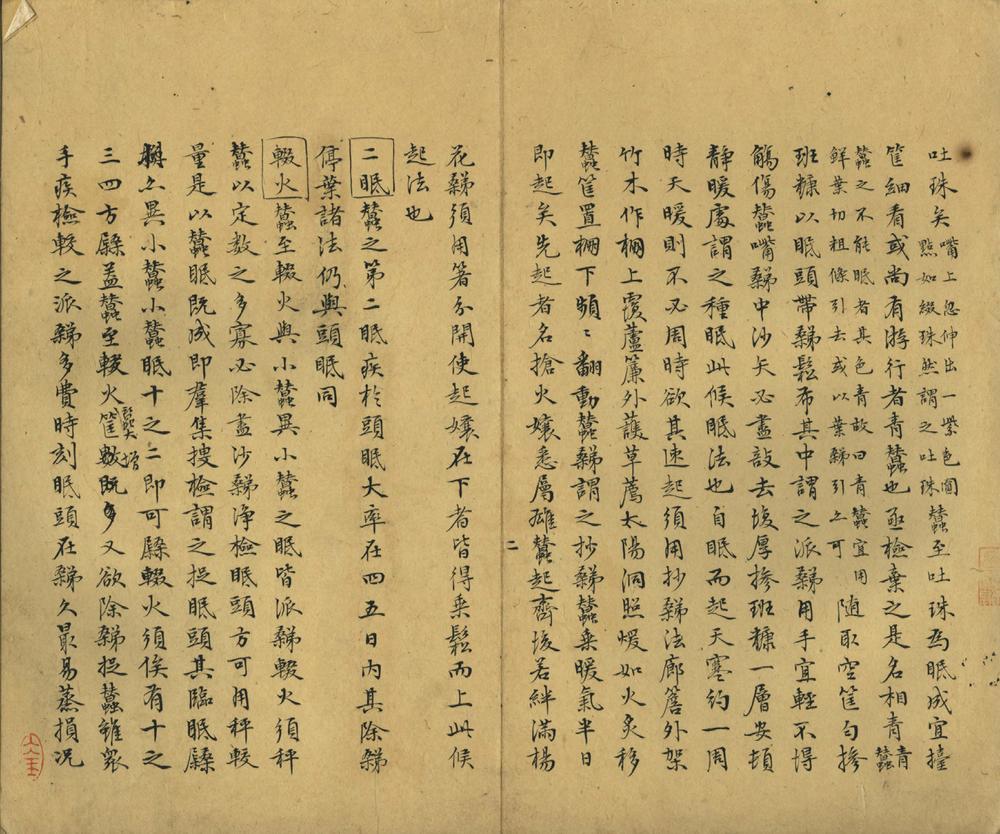 吐珠矣嘴上忽伸出一紫色圓點如綴珠然謂之吐珠蠶至吐珠為眠成宜擡
筐細看或尚有游行者青蠶也亟檢棄之是名相青青蠶
蠶之不能眠者其色青故曰青蠶宜用鮮葉切粗條引去或以葉㮴引之可隨取空筐勻摻
班糠以眠頭帶㮴鬆布其中謂之派㮴用手宜輕不得
觸傷蠶嘴㮴中沙矢必盡敲去復厚摻班糠一層安頓
靜暖處謂之種眠此候眠法也自眠而起天寒約一周
時天暖則不必周時欲其速起須用抄㮴法廊簷外架
竹木作棚上覆蘆簾外護草薦太陽洞照煖如火炙移
蠶筐置棚下頻〻翻動蠶㮴謂之抄㮴蠶乘暖氣半日
即起矣先起者名搶火孃悉層雄蠶起齊後若絆滿楊
花㮴須用箸分開使起孃在下者皆得乘鬆而上此候
起法也
二眠蠶之第二眠疾於頭眠大率在四五日內其除㮴
停葉諸法仍與頭眠同
輟火蠶至輟火與小蠶異小蠶之眠皆派㮴輟火須秤
蠶以定數之多寡必除盡沙㮴淨檢眠頭方可用秤較
量是以蠶眠既成即羣集搜檢謂之捉眠頭其臨眠屪
之異小蠶小蠶眠十之二即可屪輟火須俟有十之
三四方屪蓋蠶至輟火蠶大筐增數既多又欲除㮴捉蠶雖衆
手疾檢較之派㮴多費時刻眠頭在㮴久最易蒸損况
二